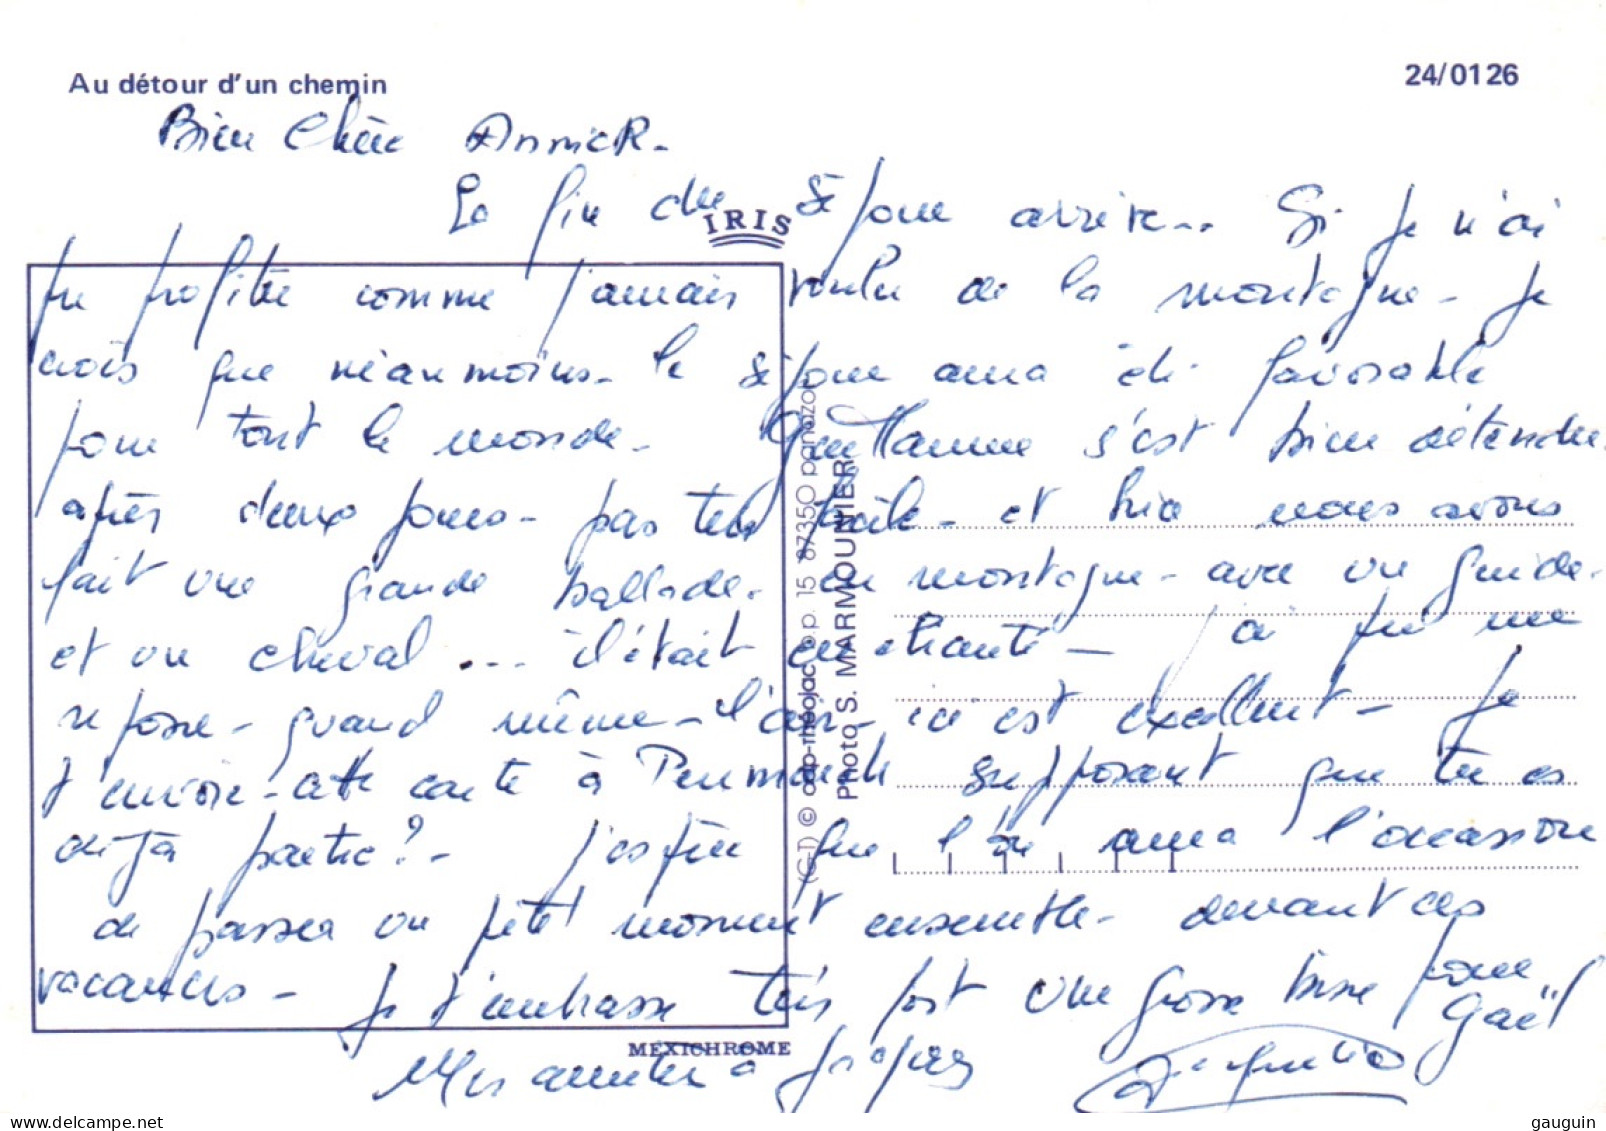 Au détour d'un chemin
24/0126
Bien Chère Annick.
La fin du séjour arrive... Si je n'ai
pu profiter comme jamais voulu de la montagne - je
crois que néanmoins - le séjour aura été favorable
pour tout le monde - Guillaume s'est bien détendu
après deux jours - pas très facile - et hier nous avons
fait une grande ballade - en montagne - avec un guide -
et un cheval ... il était enchanté - j'ai pu me
reposer - quand même - l'air - ici est excellent - Je
t'envoie - cette carte à Penmarch supposant que tu es
déjà partie ? - J'espère que l'on aura l'occasion
de passer un petit moment ensemble - devant ces
vacances - Je t'embrasse très fort une grosse bise pour
Gaël
Mes amitiés à Jacques
IRIS
MEXICHROME
(C-I) © cap-théojac b.p. 15 87350 panazol
Photo S. MARMOUNIER
gauguin ©www.delcampe.net